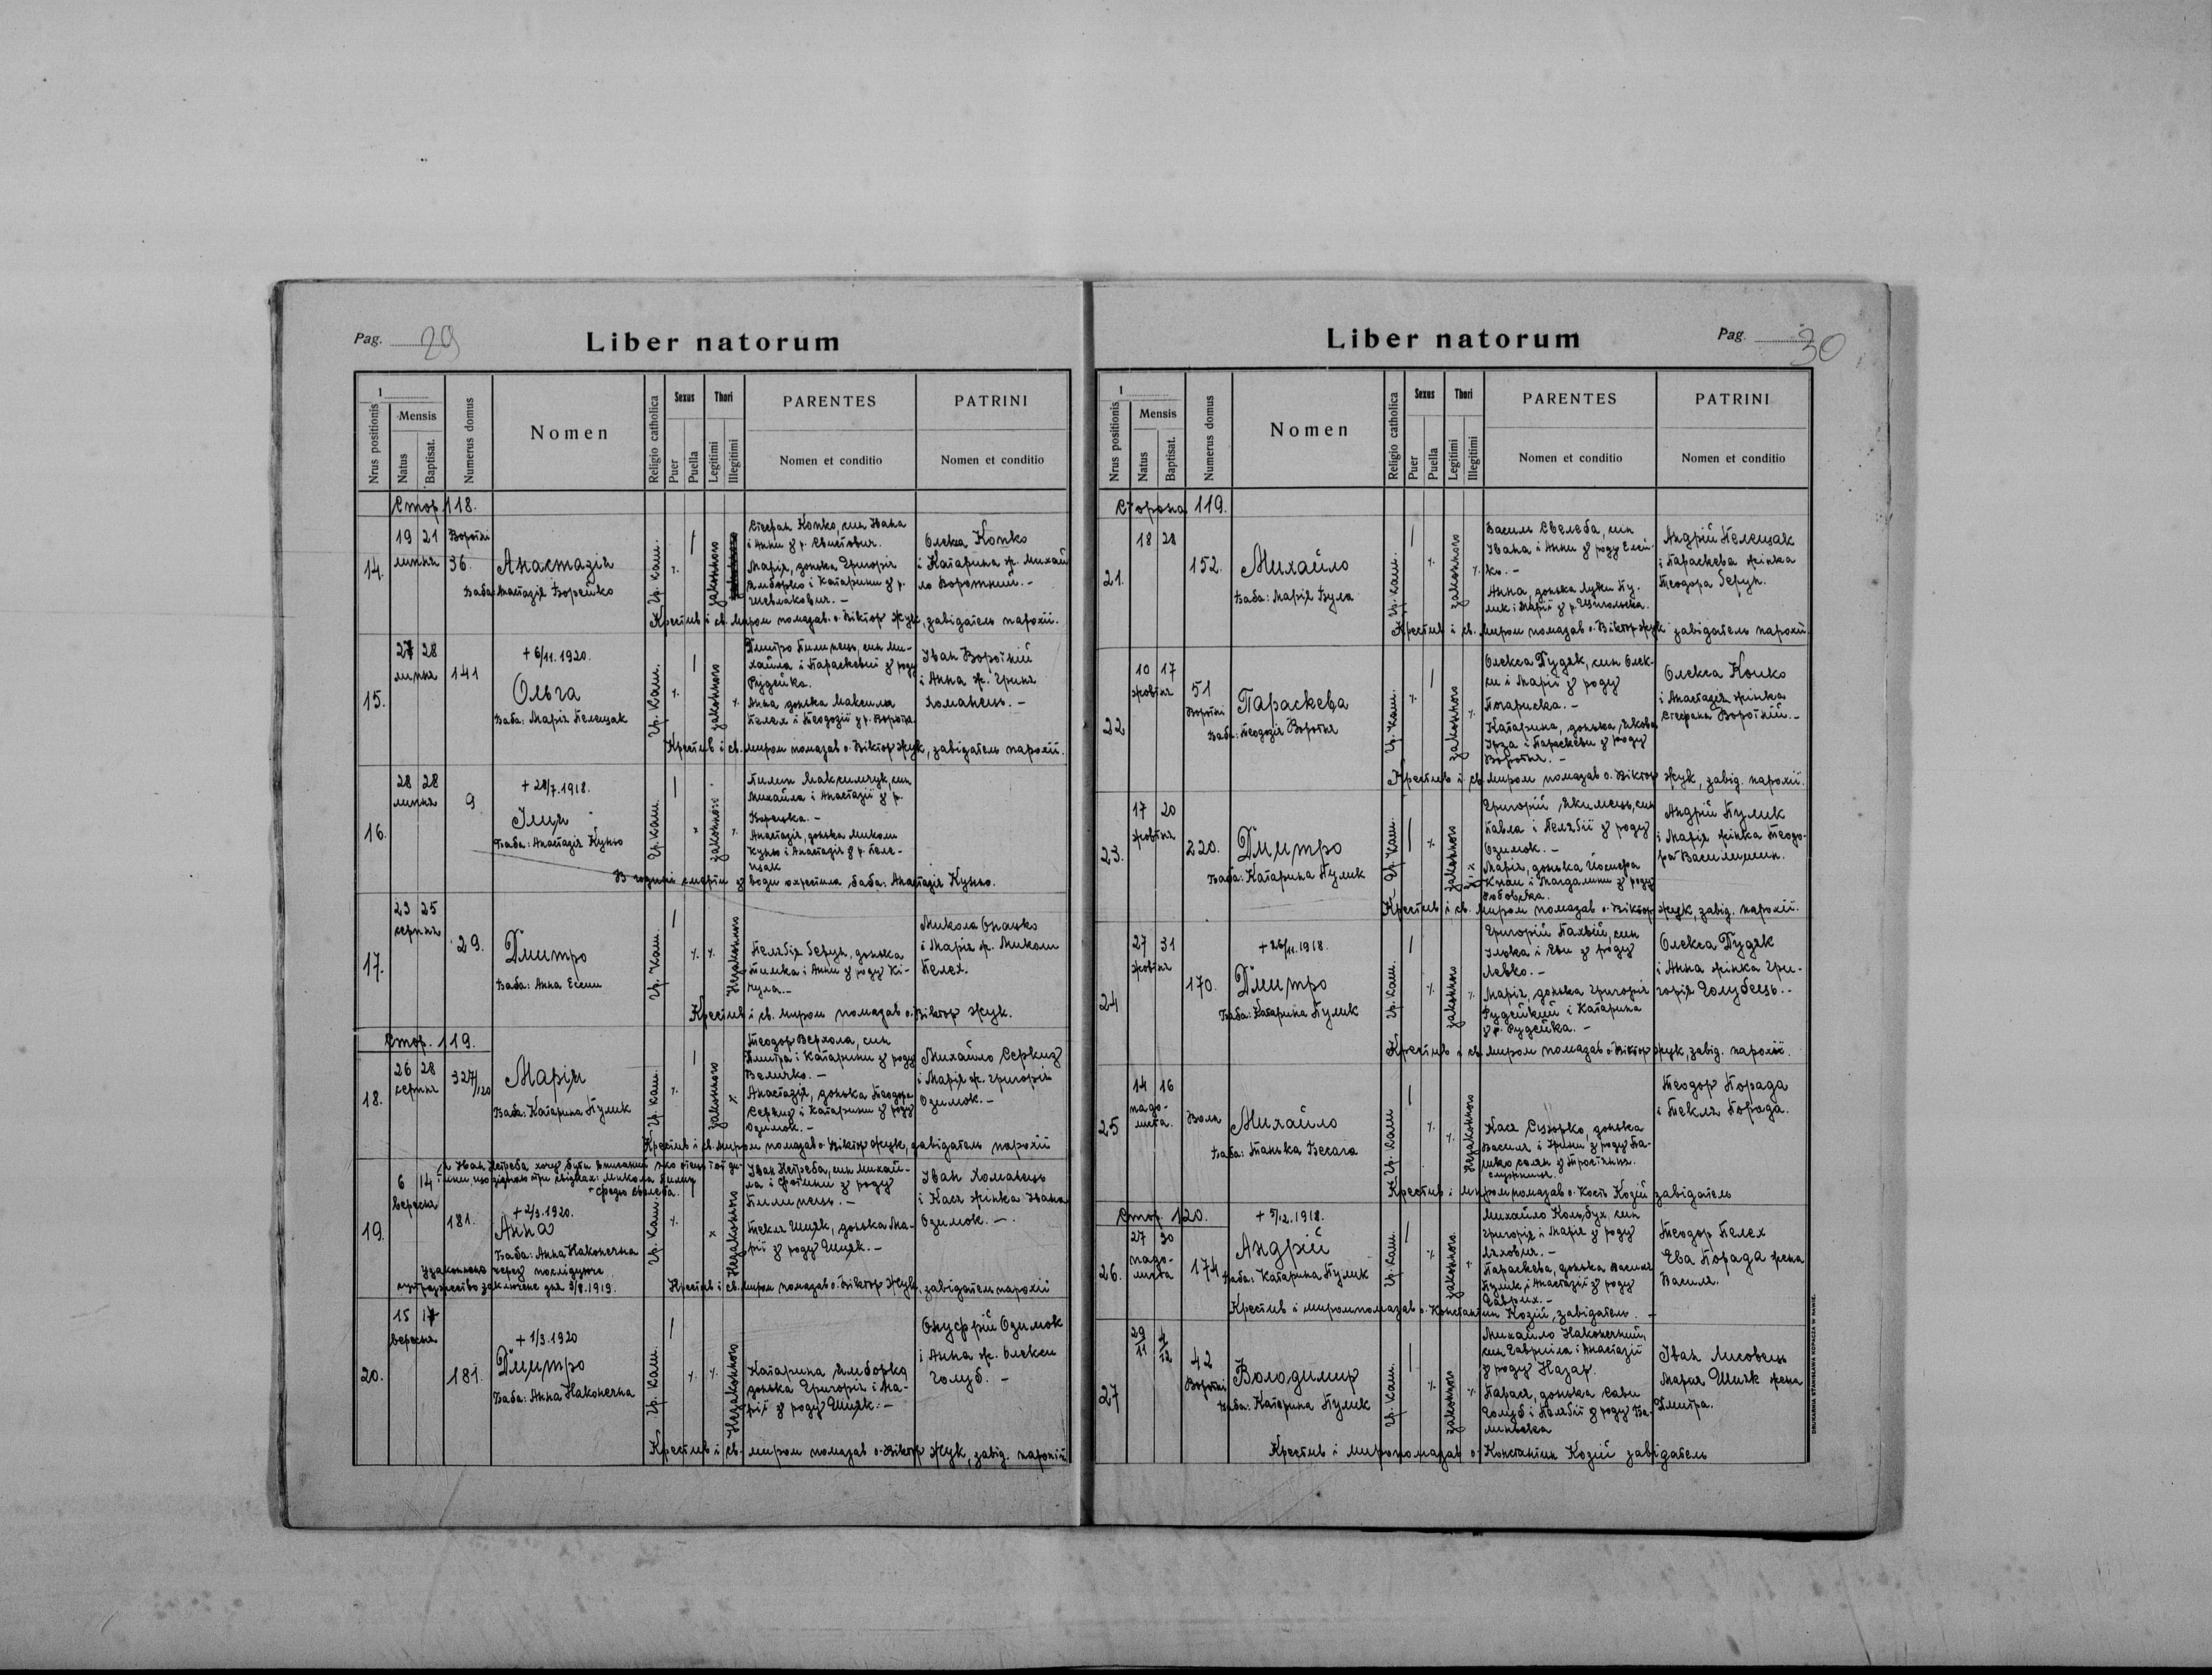 Pag. 29
Liber natorum
1
Nrus positionis
Mensis
Natus
Baptisat.
Numerus domus
Nomen
Religio catholica
Sexus
Puer
Puella
Thori
Legitimi
Illegitimi
PARENTES
Nomen et conditio
PATRINI
Nomen et conditio
Стор. 118.
14.
19 21
липня
Воротні
36.
Анастазія
Баба: Анастазія Борейко
Гр. кат.
законного
Стефан Копко, син Івана
і Анни з р. Свистович.
Марія, донька Григорія
Ямборко і Катарини з р.
Шевлякович. –
Олекса Копко
і Катарина ж. Михай
ло Воротний. –
Крестив і св. миром помазав о. Віктор Жук, завідатель парохії.
15.
27 28
липня
141
+ 6/11. 1920.
Ольга
Баба: Марія Пелещак
Гр. Кат.
законного
Дмитро Пилипець, син Ми-
хайла і Параскевії з роду
Рудейка.
Анна донька Максима
Пелех і Теодозії з р. Воротня.
Іван Воротній
і Анна ж. Гриня
Хоманець. –
Крестив і св. миром помазав о. Віктор Жук, завідатель парохії.
16.
28 28
липня
9
+ 28/7. 1918.
Ілия
Баба: Анастазія Куньо
Гр. кат.
законного
Пилип Максимчук, син
Михайла і Анастазії з р.
Анастазія, донька Миколи
Куньо і Анастазія з р. Пеле-
щак
В годині смерти з води охрестила баба: Анастазія Куньо.
17.
23 25
серпня
29.
Дмитро
Баба: Анна
Гр. Кат.
Незаконного
Пелягія Герун, донька
Тимка і Анни з роду Кі-
чула. –
Микола Онацко
і Марія ж. Миколи
Пелех.
Крестив і св. миром помазав о. Віктор Жук.
Стор. 119.
18.
26 28
серпня
327/120
Марія
Баба: Катарина Пулик
Гр. Кат.
законного
Теодор Верхола, син
Дмитра і Катарини з роду
Величко. –
Анастазія, донька Теодора
Серкиз і Катарини з роду
Озимок. –
Михайло Серкиз
і Марія ж. Григорія
Озимок. –
Крестив і св. миром помазав о. Віктор Жук, завідатель парохії
19.
6 14
вересня
181.
Я Іван Нетреба хочу бути вписаний яко отець тої ди-
тини, що зізнаю при свідках: Микола
+ 2/3. 1920.
Анна
Баба: Анна Наконечна
Узаконено через послідуюче
супружество заключене дня 3/8. 1919.
Гр. Кат.
Незаконного
Іван Нетреба, син Михай-
ла і Фотини з роду
Пилипець. –
Текля Шияк, донька Ма-
рії з роду Шияк. –
Іван Хоманець
і Кася жінка Івана
Озимок. –
Крестив і св. миром помазав о. Віктор Жук, завідатель парохії
20.
15 17
вересня
181.
+ 1/3. 1920
Дмитро
Баба: Анна Наконечна
Гр. Кат.
Незаконного
Катарина Ямборко
донька Григорія і Ма-
рії з роду Шияк. –
Онуфрій Озимок
і Анна ж. Олекси
Голуб. –
Крестив і св. миром помазав о. Віктор Жук, завід. парохії
Liber natorum
Pag. 30
1
Nrus positionis
Mensis
Natus
Baptisat.
Numerus domus
Nomen
Religio catholica
Sexus
Puer
Puella
Thori
Legitimi
Illegitimi
PARENTES
Nomen et conditio
PATRINI
Nomen et conditio
Сторона 119.
21.
18 28
152.
Михайло
Баба: Марія Вула
Гр. Кат.
законного
Василь Свелеба, син
Івана і Анни з роду
Анна, донька Луки Пу-
лик і Марії з р.
Андрій Пелещак
і Параскева жінка
Теодора Герун.
Крестив і св. миром помазав о. Віктор Жук завідатель парохії.
22
10 17
жовтня
51
Воротні
Параскева
Баба: Теодозія Воротня
Гр. Кат.
законного
Олекса Дудяк, син Олек-
си і Марії з роду
Катарина, донька Якова
і Параскеви з роду
Воротня. –
Олекса Копко
і Анастазія жінка
Стефана Воротній. –
Крестив і св. миром помазав о. Віктор Жук, завід. парохії.
23.
17 20
жовтня
220.
Дмитро
Баба: Катарина Пулик
Гр. Кат.
законного
Григорій Якимець, син
Павла і Пелягії з роду
Озимок. –
Марія, донька Йосифа
і Магдалини з роду
Андрій Пулик
і Марія жінка Теодо-
ра Василишин.
Крестив і св. миром помазав о. Віктор Жук, завід. парохії.
24
27 31
жовтня
170.
+ 26/11. 1918.
Дмитро
Баба: Катарина Пулик
Гр. Кат.
законного
Григорій Пахвій, син
Ілька і Еви з роду
Левко. –
Марія, донька Григорія
Рудейкий і Катарина
з р. Рудейка. –
Олекса Дудяк
і Анна жінка Гри-
горія Голубець. –
Крестив і св. миром помазав о. Віктор Жук, завід. парохії.
25
14 16
падо-
листа.
Воля
Михайло
Баба: Танька Бесага
Гр. Кат
Незаконного
Кася Сизорко, донька
Василя і Ірини з роду Па-
Теодор Порада
і Текля Порада.
Крестив і миропомазав о. Кость Козій завідатель
Стор. 120.
26.
27 30
падо-
листа
174
+ 5/12. 1918.
Андрій
Баба: Катарина Пулик
Гр. Кат.
законного.
Михайло Кольбух, син
Григорія і Марія з роду
Параскева, донька Василя
Пулик, і Анастазії з роду
Гаврих. –
Теодор Пелех
Ева Порада жена
Василя.
Крестив і миропомазав о. Константин Козій, завідатель. –
27
29/11 4/12
42
Воротні
Володимир
Баба: Катарина Пулик
Гр. Кат.
законного
Михайло Наконечний,
син Гавриїла і Анастазії
з роду Назар.
Парася, донька Сави
Голуб і Пелягії з роду Ва-
Іван Лисовець
Мария Шияк жена
Дмитра.
Крестив і миропомазав о. Константин Козій завідатель
DRUKARNIA STANISŁAWA KOPACZA W RAWIE.